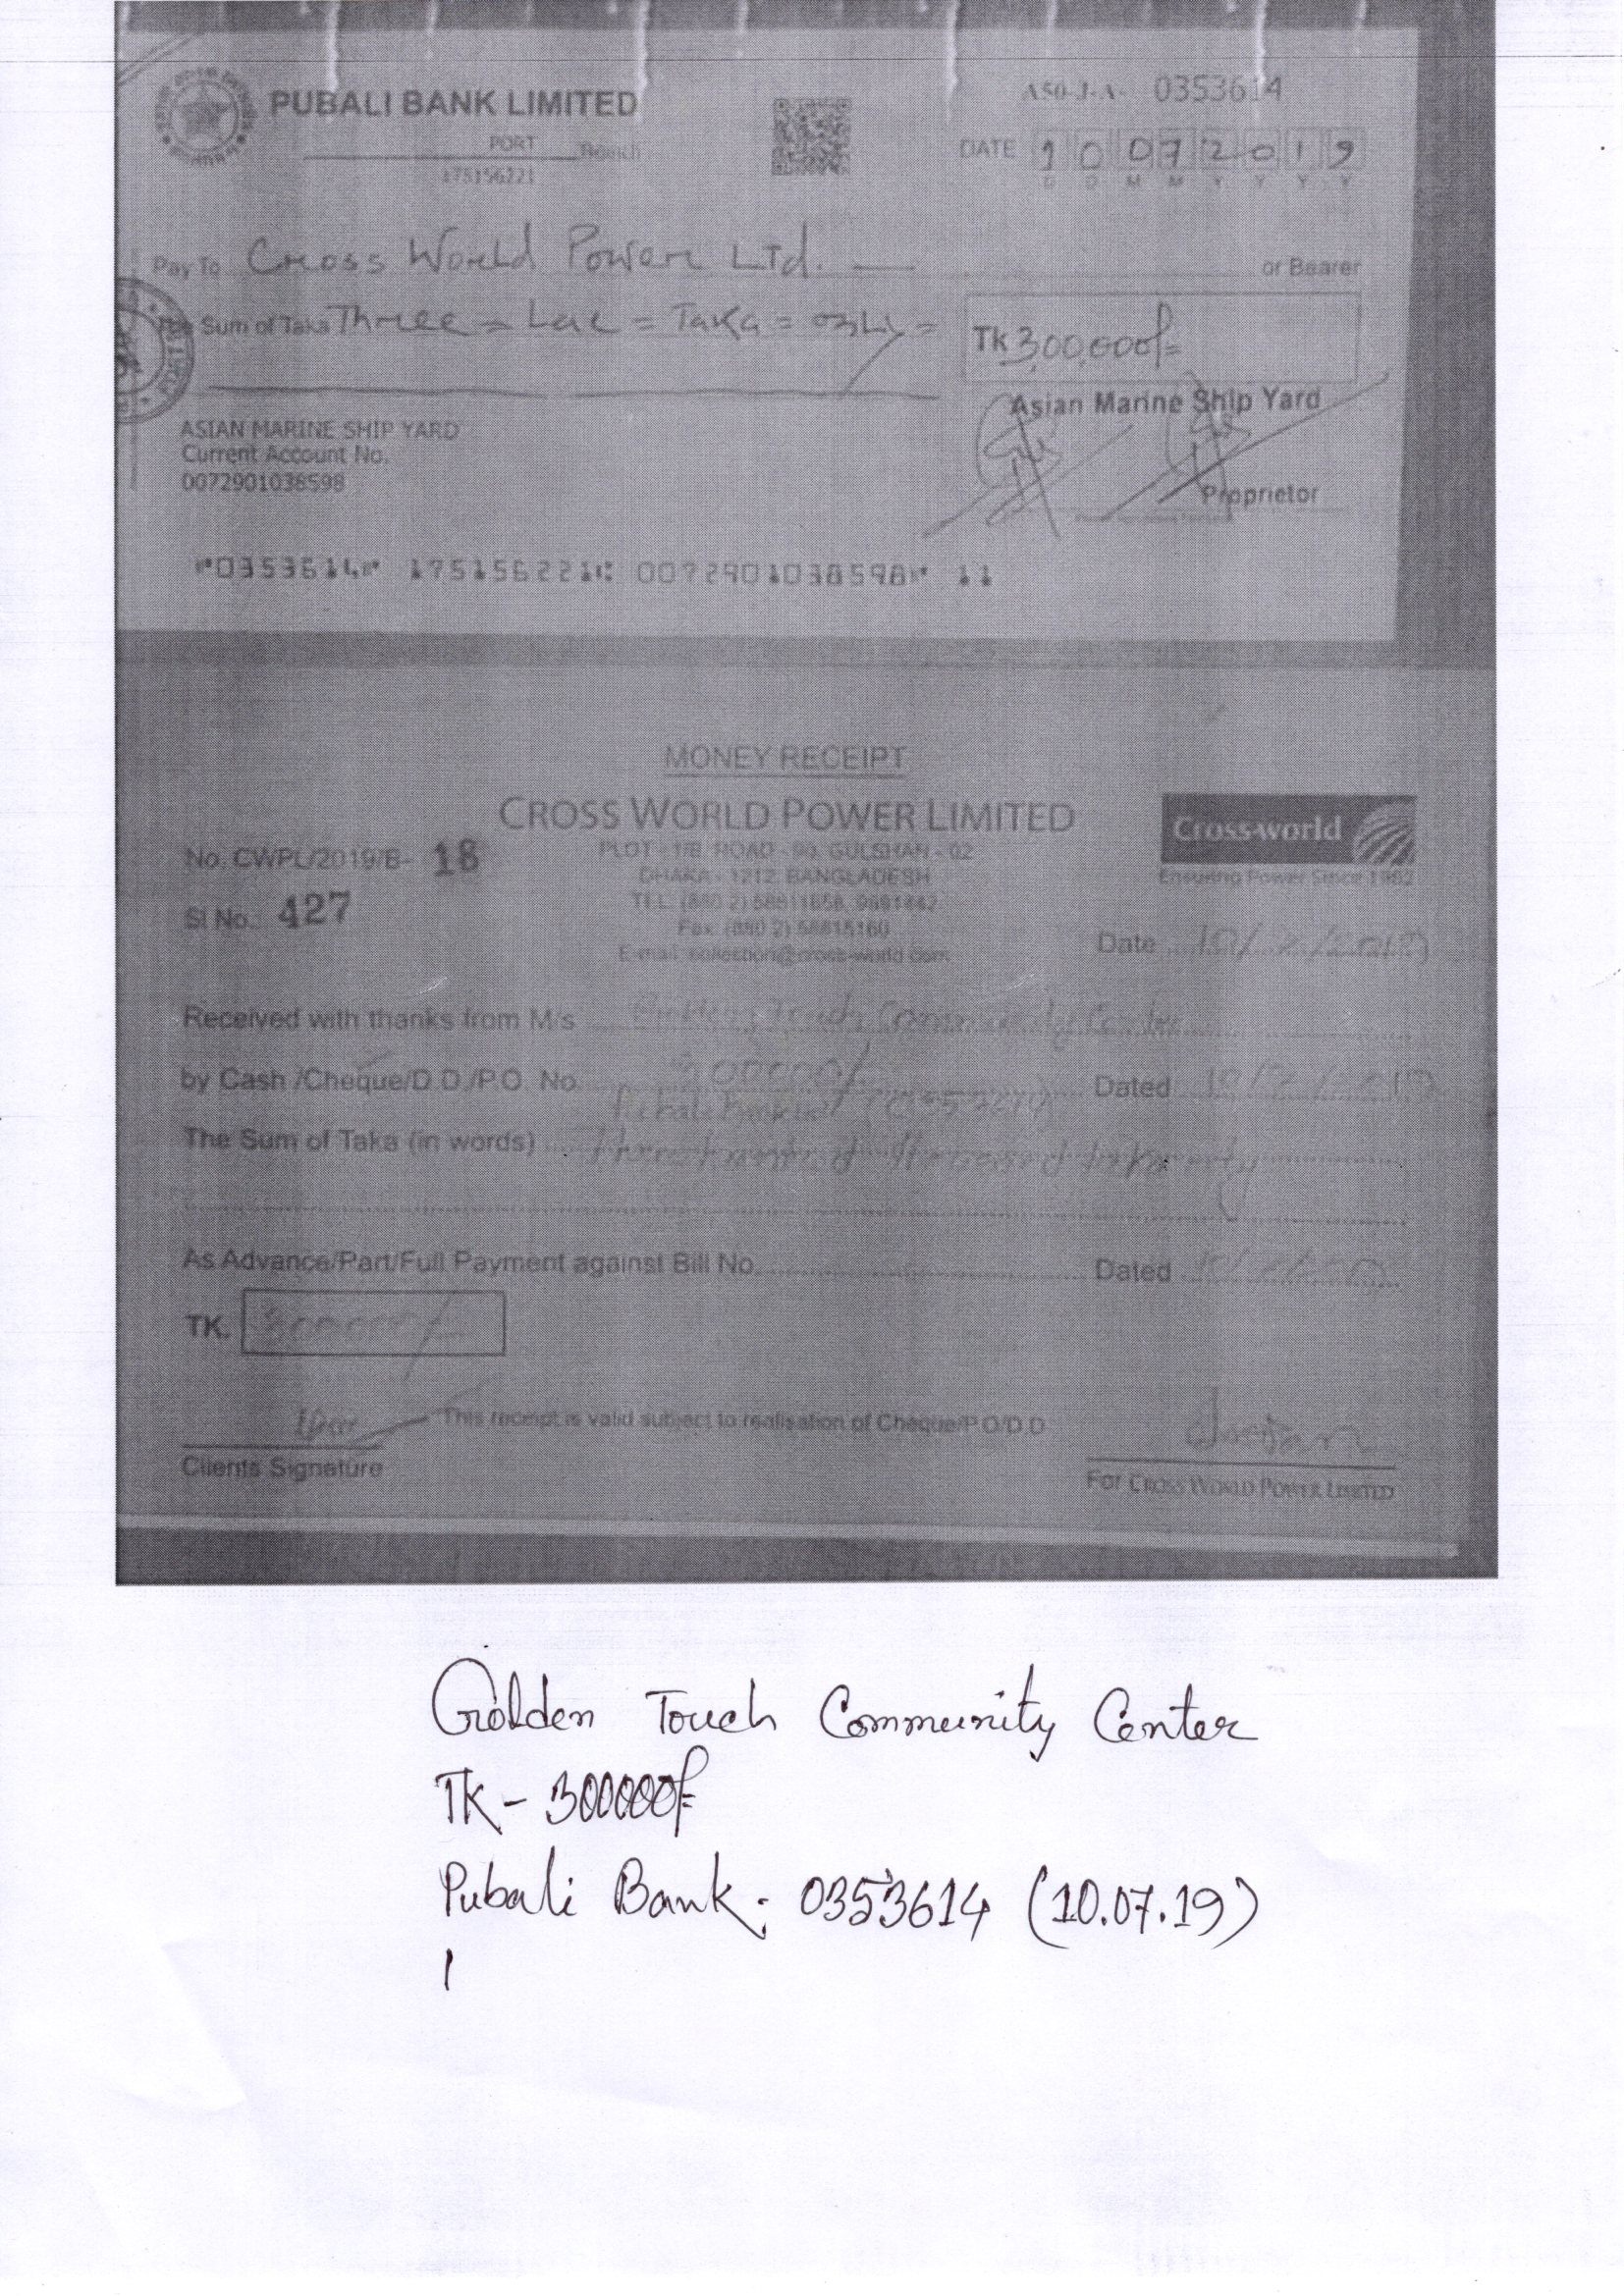 PUBALI BANK LIMITED
A50-J-A- 0353614
PORT Branch
175156221
DATE 10 07 2019
D D M M Y Y Y Y
Pay To Cross World Power LTd. or Bearer
The Sum of Taka Three = Lac = Taka = only =
Tk 3,00,000/=
Asian Marine Ship Yard
ASIAN MARINE SHIP YARD
Current Account No.
0072901038598
Proprietor
0353614 175156221 0072901038598 11
MONEY RECEIPT
CROSS WORLD POWER LIMITED
Cross-world
Ensuring Power Since 1982
No. CWPL/2019/B- 18
PLOT - 1/B, ROAD - 90, GULSHAN - 02
DHAKA - 1212, BANGLADESH
Sl No.: 427
TEL: (880 2)
Fax: (880 2) 58815160
E-mail: collection@cross-world.com
Date 10/7/2019
Received with thanks from M/s Golden Touch Community Center
by Cash /Cheque/D.D./P.O. No. 300000/ Dated 10/7/2019
Pubali Bank
The Sum of Taka (in words) Three hundred thousand taka only
As Advance/Part/Full Payment against Bill No. Dated
TK. 300000/=
This receipt is valid subject to realisation of Cheque/P.O/D.D
Clients Signature
For CROSS WORLD POWER LIMITED
Golden Touch Community Center
TK - 300000/=
Pubali Bank: 0353614 (10.07.19)